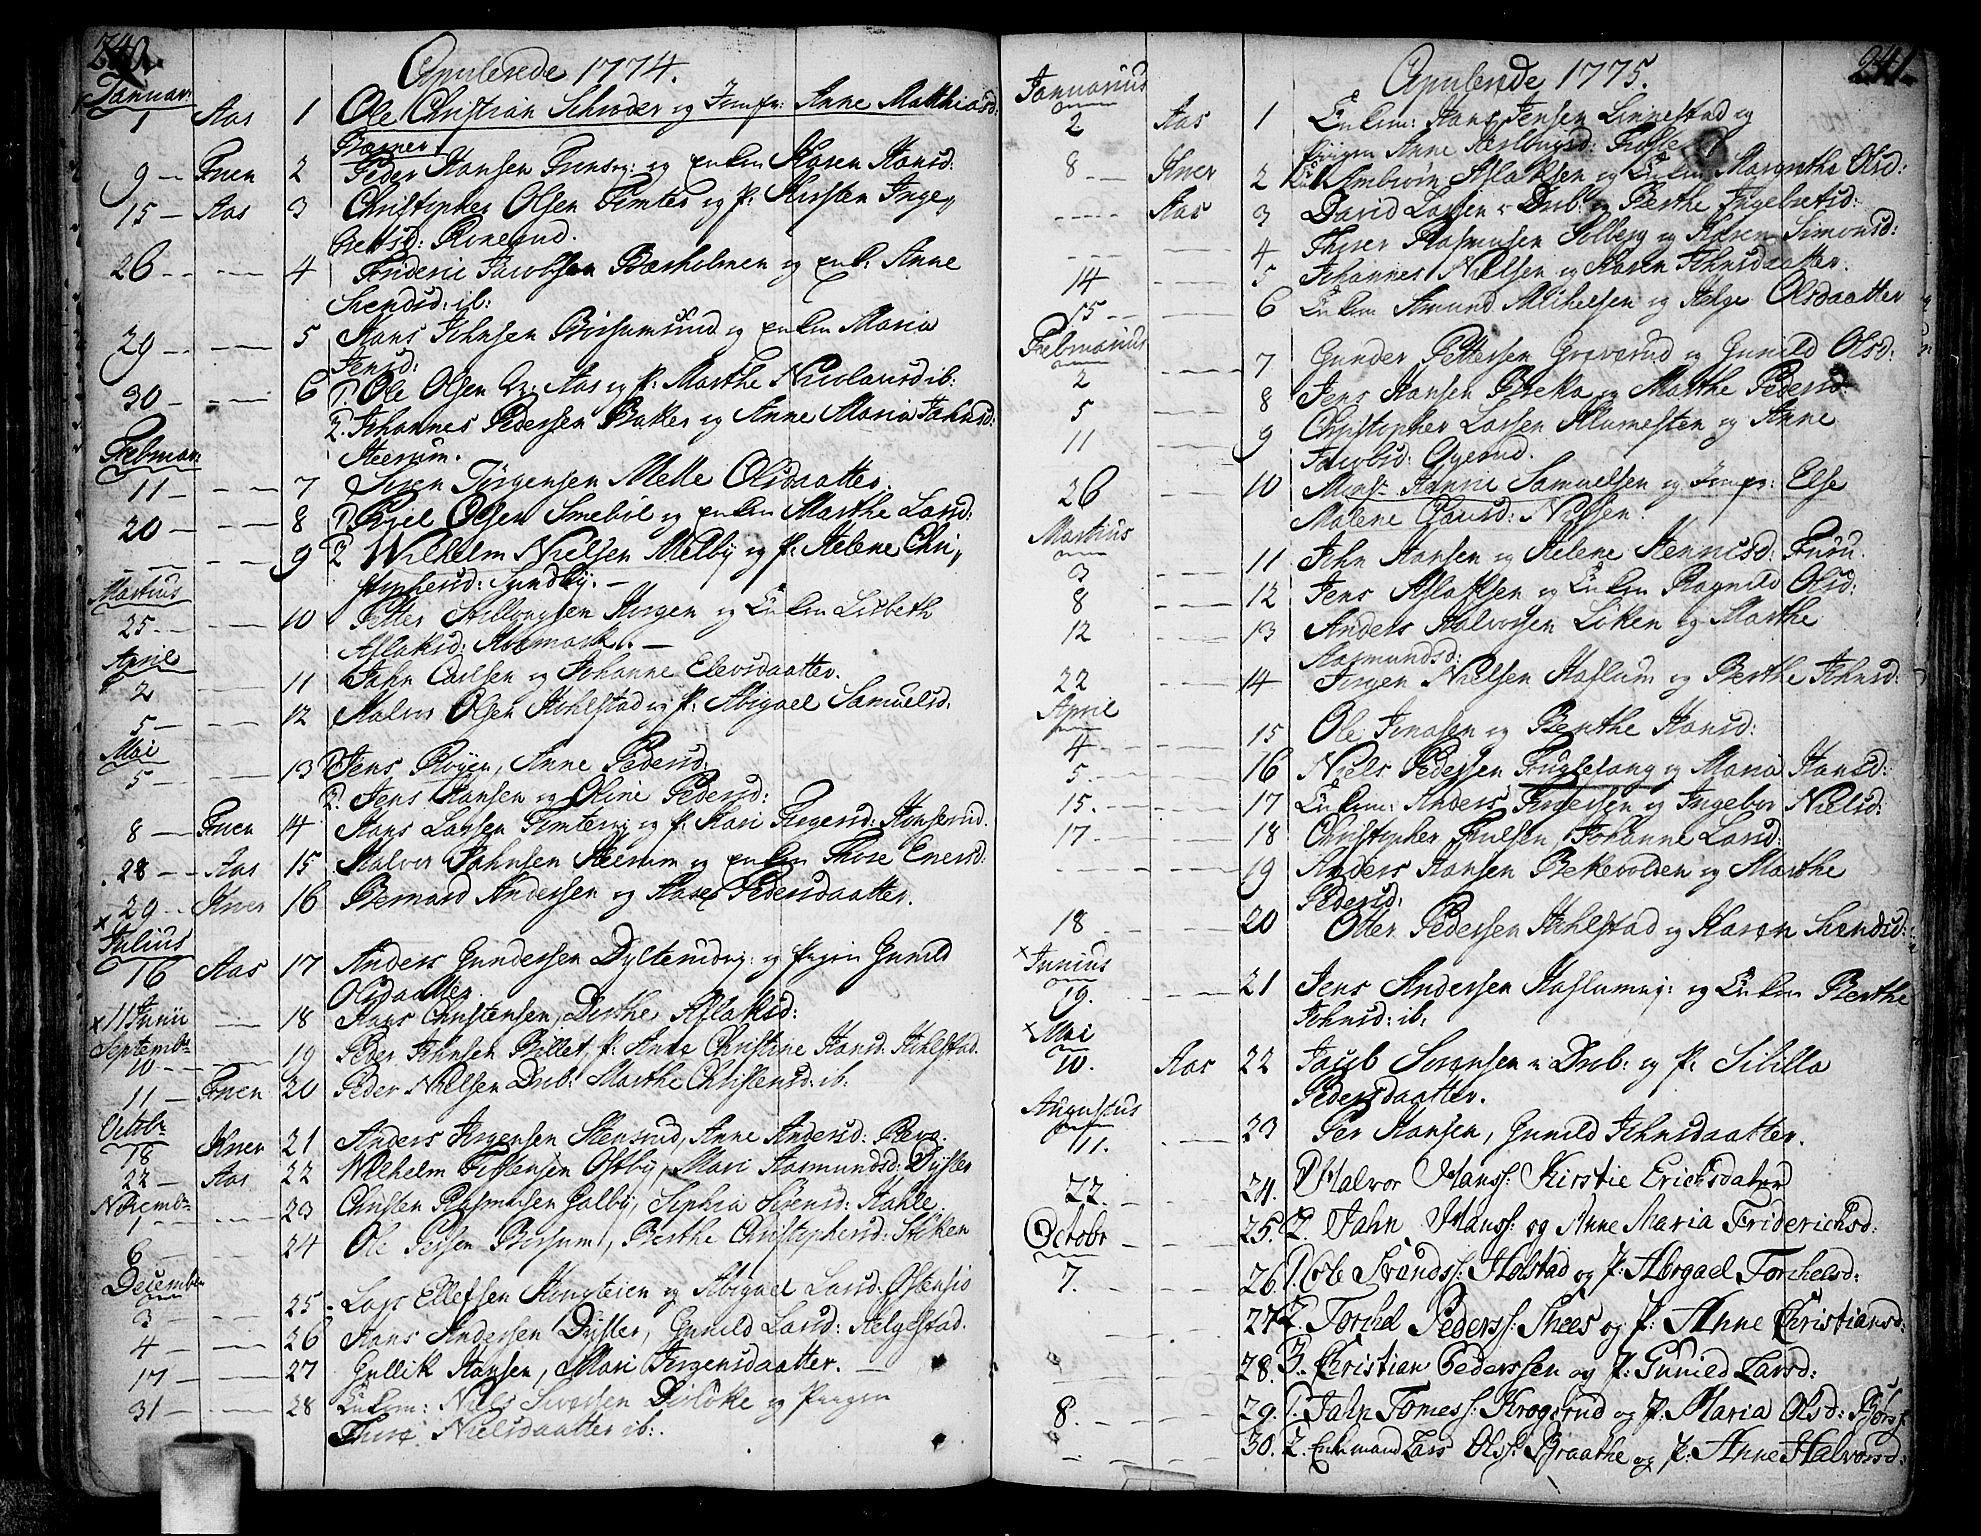 240.
Copulerede 1774.
Januar:
1 Aas 1 Ole Christian Schrøder og Jomfr: Anne Matthiasd:
9 - Enen 2 Peder Hansen og enken Karen Hansd:
15 - Aas 3 Christopher Olsen Timter og P: Kirsten Inge,,
bretsd: Rinerud.
26 - - 4 Frideric Jacobsen Bærholmen og enk: Anne
Svendsd: ib:
29 - - 5 Hans Johnsen og enken Maria
Jensd:
30 - - 6 1. Ole Olsen Aas og P: Marthe Nicolausd ib:
2. Johannes Pedersen Bakker og Anne Maria Johnsd:
Heerum.
Februar:
11 - 7 Søren Jørgensen Melle Olsdaatter.
20 - 8 1. Kield Olsen Smebøl og enken Marthe Larsd:
- 9 2 Wilhelm Nielsen Melby og P: Helene Chri,,
stophersd: Sundby. -
Martius
25 - 10 Petter og Enken Lisbeth
Aslaksd:
April
2 11 John Carlsen og Johanne Elevsdaatter.
5 - 12 Halvor Olsen Kohlstad og P: Abigael Samuelsd:
Mai
5 - 13 1 Jens Røyen, Anne Pedersd:
2. Jens Hansen og Oline Pedersd:
8 - Enen 14 Hans Larsen og P: Kari
28 - Aas 15 Halvor Johnsen Heerum og enken Thore Enersd:
29 - Kroer 16 Bernard Andersen og Karen Pedersdaatter.
× Julius
16 Aas 17 Anders Gundersen og Pigen Gunild
Olsdaatter.
× 11 Junii 18 Hans Christensen, Dorthe Aslaksd:
Septembr
10 - 19 Peder Johnsen Billet, P: Anne Christine Hansd: Kohlstad.
11 - Enen 20 Peder Nielsen Drøb: Marthe Christensd: ib:
Octobr
18 Kroer 21 Anders Jørgensen Stensrud, Anne Andersd:
22 - Aas 22 Wilhelm Østby, Mari Aasmundsd: Dyster
Novembr
1 - 23 Christen Rasmusen Galby, Sophia
6 - 24 Ole Persen Borsum, Berthe Christophersd:
December
3 - 25 - Lars Ellefsen og Abigael Larsd:
4 - 26 Hans Andersen Dyster, Gunild Larsd: Helgestad.
17 - 27 Gullik Hansen, Mari Jørgensdaatter. -
31 - 28 Enkem: Niels og Pigen
Nielsdaatter ib:.
241.
Copulerede 1775.
Januarius
2 Aas 1 Enkem: Hans Jensen Linnestad og
Pigen Anne
8 - Kroer 2 Ambiørn Aslaksen og Enken Margrethe Olsd:
- Aas 3 David Larsen Drøb: og Berthe Ingebretsd:
- 4 Rasmusen Solberg og Karen Simonsd:
14 - 5 Johannes Nielsen og Karen Johnsdaatter.
15 - 6 Enkem Amund Mikelsen og Helge Olsdaatter
Februarius
2 - 7 Gunder Pettersen Greverud og Gunild Olsd:
5 - 8 Jens Hansen og Marthe Pedersd:
11 - 9 Christopher Larsen Klumesten og Anne
Jacobsd:
26 - 10 Monsr Hanne Samuelsen og Jomfr: Else
Malene Nilsen.
Martius
3 - 11 John Hansen og Helene Furu.
8 - 12 Jens Aslaksen og Enken Ragnild Olsd:
12 - 13 Anders Halvorsen Løken og Marthe
Aasmundsd:
22 - 14 Jørgen Nielsen Haslum og Berthe Johnsd:
April
4 - 15 Ole Jonasen og Berthe Hansd:
5 - 16 Niels Pedersen Fuglesang og Maria Hansd:
15. - 17 Enkem: Anders Andersen og Ingebor Nielsd:
17 - 18 Christopher Johanne Larsd:
- 19 Anders Hansen Bekevolden og Marthe
Pedersd:
18 - 20 Otter Pedersen Kohlstad og Karen Svendsd:
× Junius
19. - 21 Jens Andersen og Enken Berthe
Johnsd: ib:
× Mai
10. Aas 22 Jacob Sørensen Drøb: og P: Sibilla
Pedersdaatter.
Augustus
11. - 23 Per Hansen, Gunild Johnsdaatter.
22. - 24. 1 Halvor Hanss: Kirstie Ericksdatter
25. 2. Jahn Hanss: og Anne Maria Friderichsd:
Octobr
7. - 26. 1. Ole Svends: Holstad og P: Abigael Torchelsd:
27 2. Torchel Pederss: Skees og P: Anne Christiansd:
28. 3. Christian Pederssen og P: Gunied Larsd:
8. - 29. 1. Jahn Tomess: Krogsrud og P: Maria Olsd:
- 30. 2. Enkemand Lars Olss: Braathe og P: Anne Halvorsd: